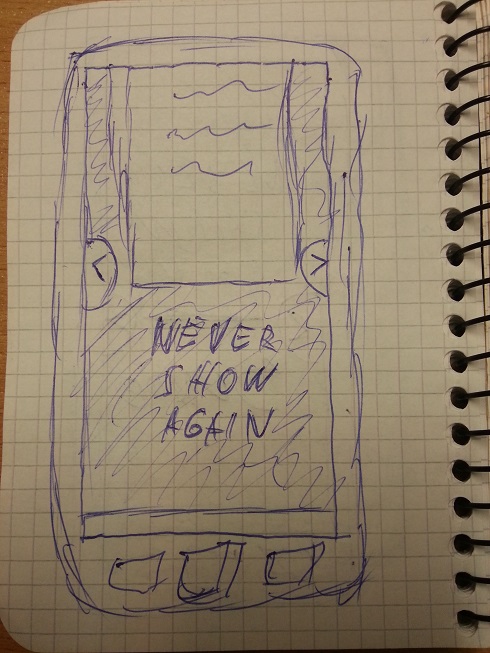 NEVER
SHOW
AGAIN